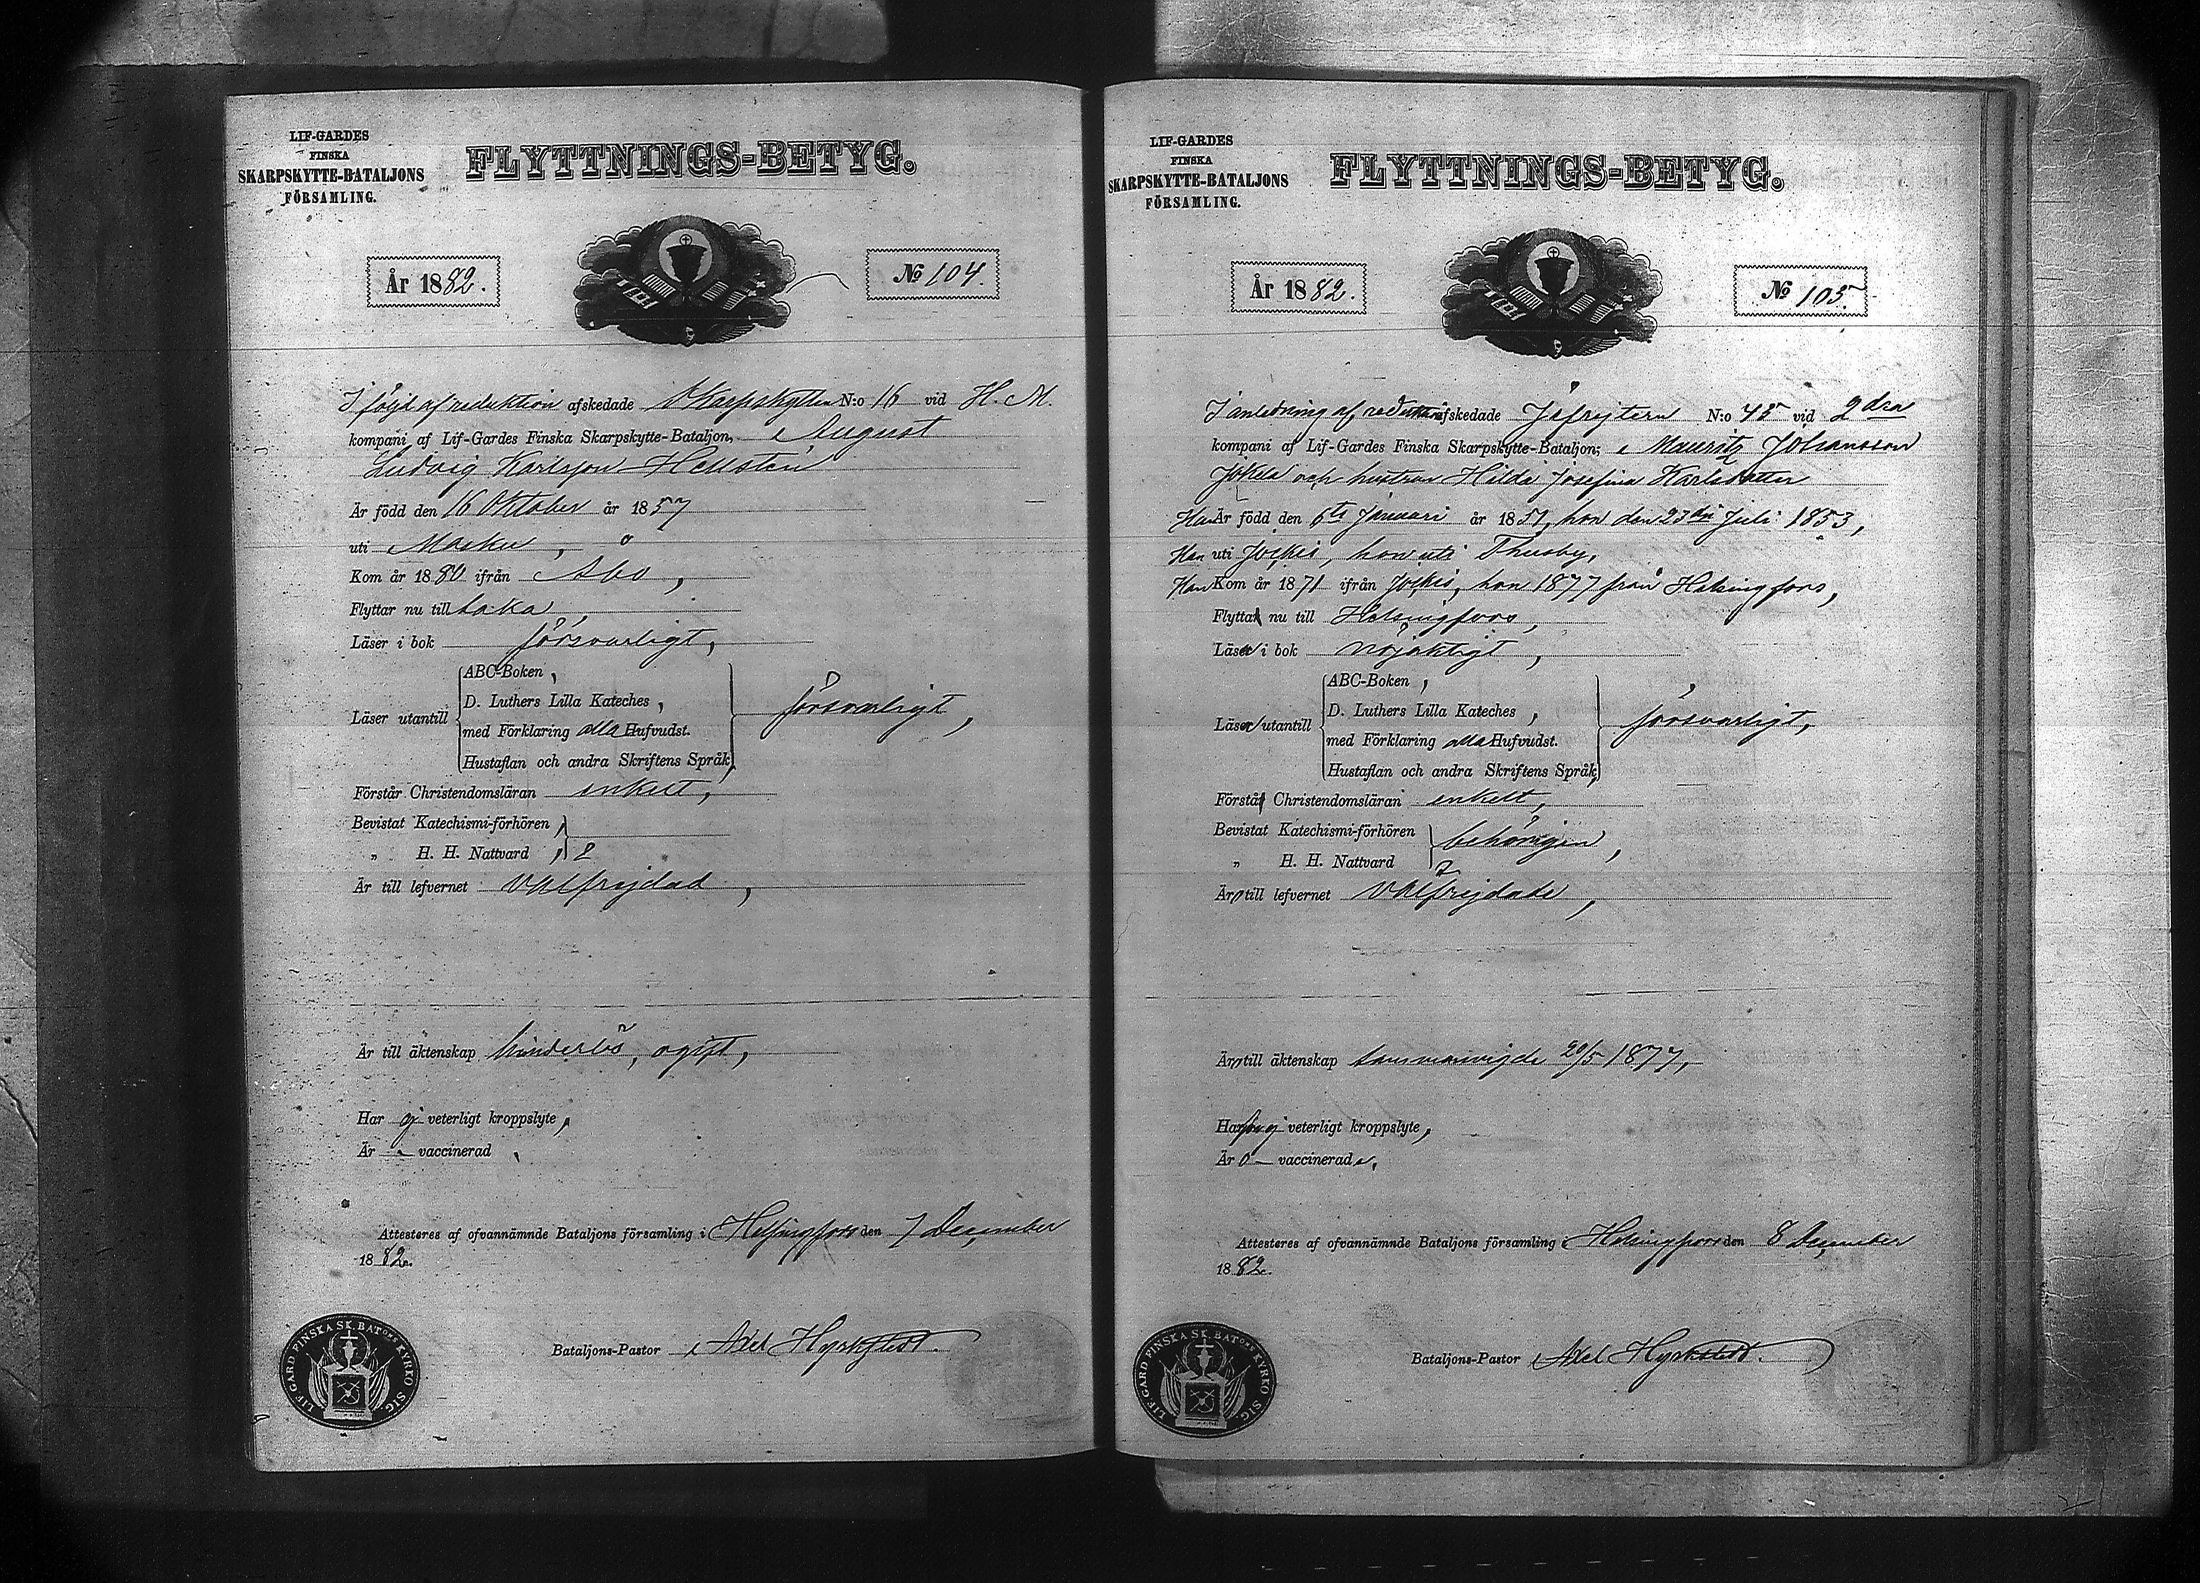 LIF-GARDES
FINSKA
SKARPSKYTTE-BATALJONS
FÖRSAMLING.
FLYTTNINGS-BETYG.
År 1882.
№ 104.
I följd af reduktion afskedade Skarpskytten N:o 16 vid H. M.
kompani af Lif-Gardes Finska Skarpskytte-Bataljon, August
Ludvig Karlsson Hellsten
Är född den 16 Oktober år 1857
uti Masku,
Kom år 1880 ifrån Åbo,
Flyttar nu till
Läser i bok försvarligt,
Läser utantill
ABC-Boken,
D. Luthers Lilla Kateches,
med Förklaring alla Hufvudst.
Hustaflan och andra Skriftens Språk
försvarligt,
Förstår Christendomsläran enkelt,
Bevistat Katechismi-förhören,
„ H. H. Nattvard,
Är till lefvernet välfrejdad,
Är till äktenskap hinderlös, ogift,
Har ej veterligt kroppslyte,
Är vaccinerad
Attesteres af ofvannämnde Bataljons församling i Helsingfors den 7 December
1882.
Bataljons-Pastor Axel Hyrkstedt.
LIF GARD FINSKA SK. BATONS KYRKO SIG.
LIF-GARDES
FINSKA
SKARPSKYTTE-BATALJONS
FÖRSAMLING.
FLYTTNINGS-BETYG.
År 1882.
№ 105.
I anledning af reduktion afskedade Gefrejtern N:o 45 vid 2dra
kompani af Lif-Gardes Finska Skarpskytte-Bataljon; Mauritz Johansson
Jokela och hustrun Hilda Josefina Karlsdotter
Han Är född den 6te Januari år 1851, hon den 23die Juli 1853,
Han uti Jockis, hon uti Thusby,
Han Kom år 1871 ifrån Jockis, hon 1877 från Helsingfors,
Flytta nu till Helsingfors,
Läsa i bok nöjaktigt,
Läsa utantill
ABC-Boken,
D. Luthers Lilla Kateches,
med Förklaring alla Hufvudst.
Hustaflan och andra Skriftens Språk
försvarligt,
Förstå Christendomsläran enkelt,
Bevistat Katechismi-förhören
„ H. H. Nattvard
behörigen,
Äro till lefvernet välfrejdade,
Äro till äktenskap sammanvigde 20/5 1877,
Hafva ej veterligt kroppslyte,
Äro vaccinerade.
Attesteres af ofvannämnde Bataljons församling i Helsingfors den 8 December
1882.
Bataljons-Pastor Axel Hyrkstedt.
LIF GARD FINSKA SK. BATONS KYRKO SIG.